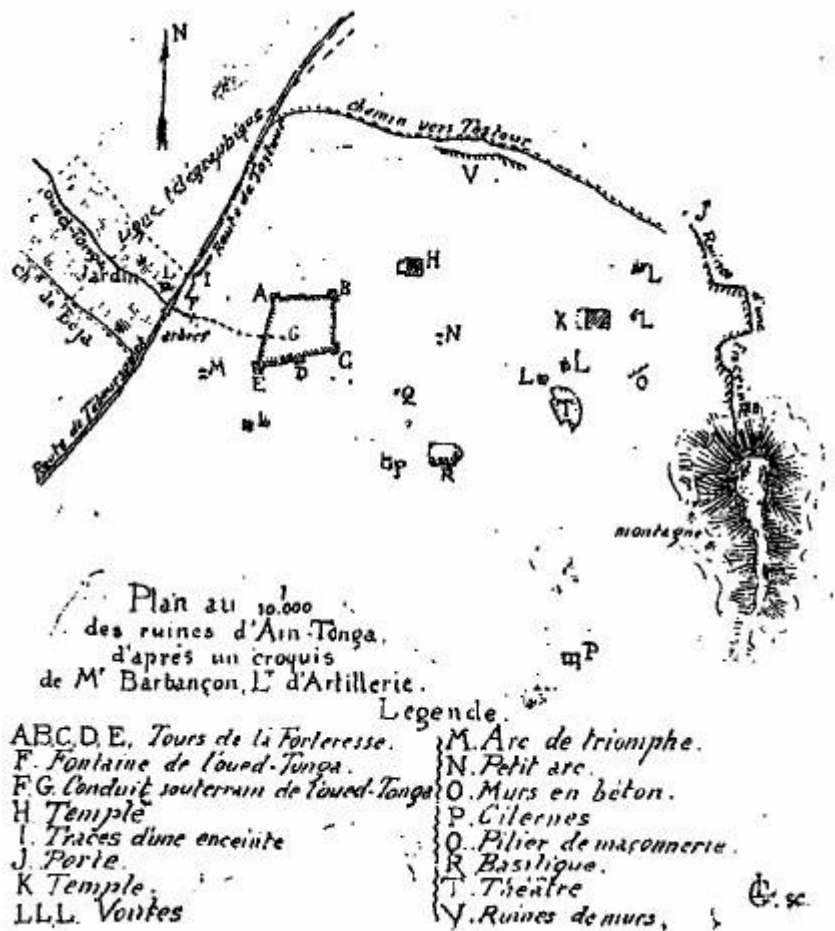 N
chemin vers Testour
V
Ligne télégraphique
Route de Testour
oued-Tonga
Jardin
ch. de Béja
L
I
F
arbres
A
B
G
C
D
E
M
L
H
N
Q
P
R
K
L
L
L
L
O
T
J
Ruines d'une Enceinte
montagne
P
Route de Teboursouk
Plan au 1/10.000
des ruines d'Aïn-Tonga,
d'après un croquis
de Mr Barbançon, Lt d'Artillerie.
Légende.
A B, C, D, E, Tours de la Forteresse.
F. Fontaine de l'oued-Tonga.
F, G. Conduit souterrain de l'oued-Tonga
H Temple
I. Traces d'une enceinte
J. Porte.
K Temple.
L L, L. Voûtes
M. Arc de triomphe.
N. Petit arc.
O. Murs en béton.
P. Citernes
Q. Pilier de maçonnerie.
R Basilique.
T. Théâtre
V. Ruines de murs,
sc.